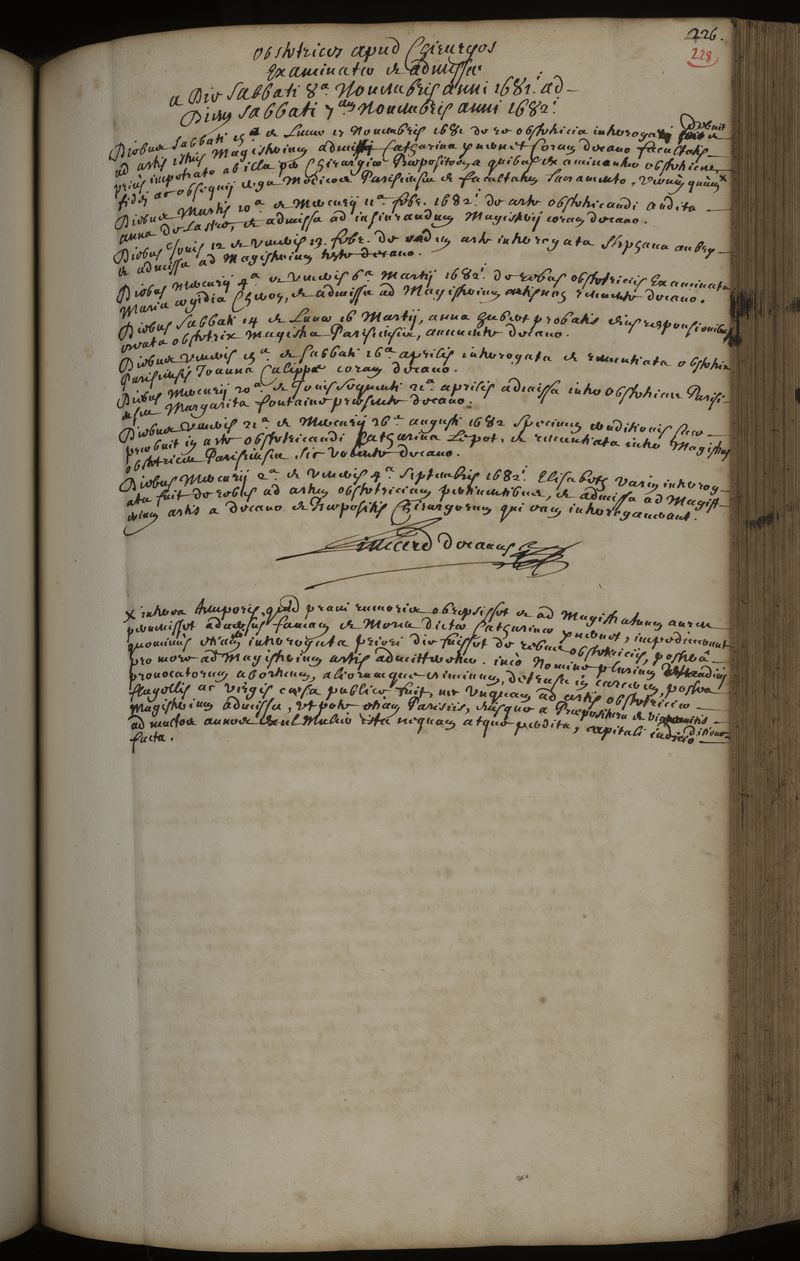 226.
228
obstetrices apud Chirurgos
Examinatæ et admissæ
a Die Sabbati 8ª Novembris anni 1681. ad
Diem Sabbati 7am Novembris anni 1682.
Diebus Sabbati 15ª et Lunæ 17 Novembris 1681 de re obstetricia interrogata debuit
ad artis istius Magisterium admitti Catharina coram decano facultatis
prius impetrato ab illa pro Chirurgiæ Præpositos, a quibus examinantur obstetrices,
fidei ac obsequii erga medicos Parisienses et facultatem Sacramento, verum quum x
Diebus Martis 10ª et Mercurii 11ª febr. 1682. de arte obstetricandi audita
anna De Lastre, et admissa ad ineundum Magisterii coram decano.
Diebus Jovis 12 et Veneris 13. febr. de eadem arte interrogata Stephana aubry
et admissa ad Magisterium teste decano.
Diebus Mercurii 4ª et Veneris 6ª Martii 1682. de rebus obstetriciis Examinata
Maria ægidia et admissa ad Magisterium decano.
Diebus Sabbati 14 et Lunæ 16 Martii, anna probatis eius responsionibus
obstetrix magistra Parisiensis, annuente decano.
Diebus Veneris et Sabbati aprilis interrogata et renuntiata obstetrix
Parisiensis Joanna Calippe coram decano.
Diebus Mercurii 20ª et Jovis Sequenti 21ª aprilis admissa inter obstetrices Parisi-
enses Margarita fontaine præsente decano.
Diebus Veneris 21ª et Mercurii 26ª augusti 1682 Specimen eruditionis suæ
præbuit in arte obstetricandi Catharina Lepot, et renuntiata inter Magistras
obstetrices Parisienses sic volente decano.
Diebus Mercurii 2ª et Veneris 4ª Septembris 1682. Elisabeth Varin interrog-
ata fuit de rebus ad artem obstetriciam pertinentibus, et admissa ad Magist-
erium artis a decano et Præpositis Chirurgorum qui eam interrogaverant.
decanus
x interea temporis, quod pravi rumores obrepsissent et ad Magistratuum aures
pervenissent adversus famam et Mores dictæ Catharinæ impedierunt
quominus etiam interrogata priori die fuisset de rebus obstetriciis, postea
pro more ad Magisterium artis admitteretur. imo Nomine plurium
provocatorum abortuum, aliorumque criminum, detrusa in carcerem, postea
flagellis ac virgis cæsa publice fuit, nec unquam ad artis obstetriciæ
Magisterium admissa, utpote etiam Parisiis, eiusque a Præpositura et
ad multos annos Exul Mulier ista nequam atque perdita, capitali iudicio
facta.